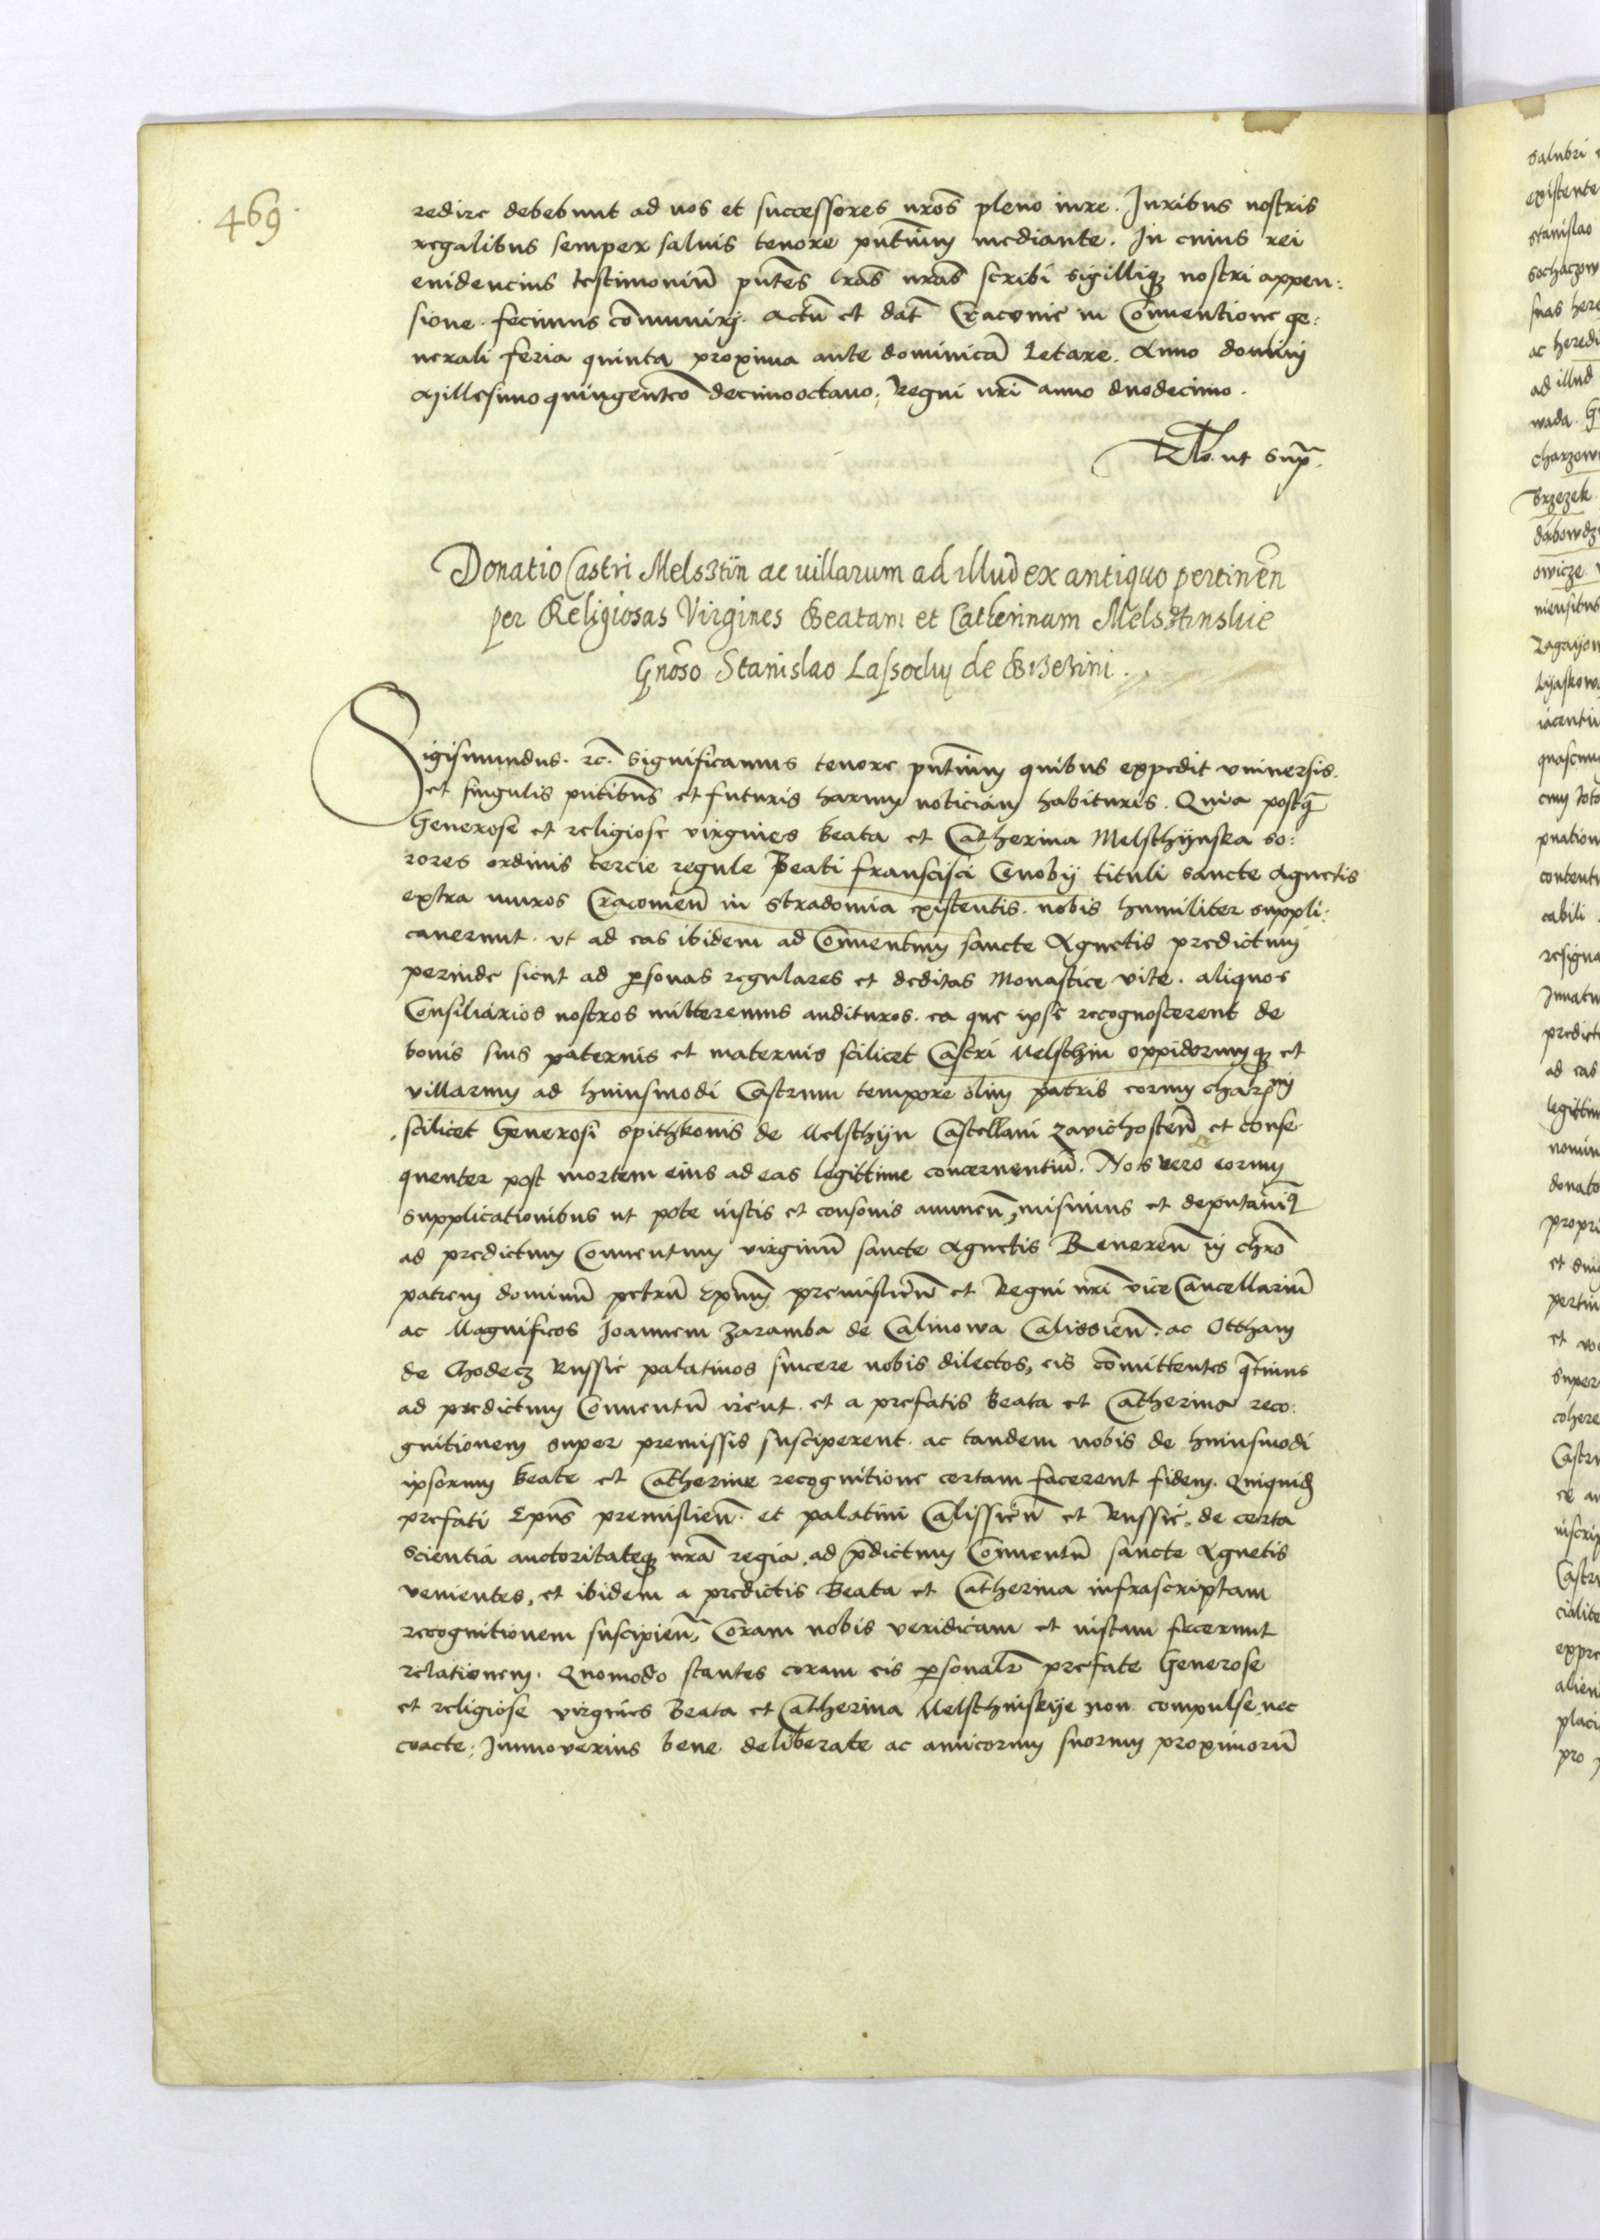 469
redire debebunt ad nos et successores nros pleno iure. Iuribus nostris
regalibus semper saluis tenore pntium mediante. In cuius rei
euidencius testimoniu pntes lras nras scribi sigilliq nostri appen:
sione fecimus comuniri. Actu et dat Cracouie in Conuentione ge:
nerali feria quinta proxima ante dominica Letare. Anno domini
Millesimo quingenteo decimooctauo; Regni nri anno duodecimo.
Rlo. ut sup
Donatio Castri Melsztin ac uillarum ad illud ex antiquo pertinen
per Religiosas Virgines Beatam et Catherinam Melsztinskie
Gnoso Stanislao Lassocky de Brzezini.
Sigismundus. rc. Significamus tenore pntium quibus expedit vniuersis.
et singulis pntibus et futuris harum noticiam habituris. Quia postq
Generose et religiose virgines Beata et Catherina Melschtynska so:
rores ordinis tercie regule Beati francisci Cenobij tituli sancte Agnetis
extra muros Cracouien in Stradomia existentis. nobis humiliter suppli:
cauerunt. vt ad eas ibidem ad Conuentum sancte Agnetis predictum
perinde sicut ad psonas regulares et deditas Monastice vite. aliquos
Consiliarios nostros mitteremus audituros. ea que ipse recognoscerent de
bonis suis paternis et maternis scilicet Castri Melschtin oppidorumq et
villarum ad huiusmodi Castrum tempore olim patris eorum charmi
scilicet Generosi Spithkonis de Melschtyn Castellani Zavichosten et conse
quenter post mortem eius ad eas legittime concernentiu. Nos vero eorum
supplicationibus ut pote iustis et consonis annuen, misimus et deputauimq
ad predictum Conuentum virginu sancte Agnetis Reueren in chro
patrem dominu petru Epum premislien et Regni nri vice Cancellariu
ac Magnificos Joannem Zaramba de Calinowa Calissien. ac Ottham
de Chodecz Russie palatinos sincere nobis dilectos, eis comittentes qtinus
ad predictum Conuentu irent. et a prefatis Beata et Catherina reco:
gnitionem super premissis susciperent. ac tandem nobis de huiusmodi
ipsorum Beate et Catherine recognitione certam facerent fidem. Quiquid
prefati Epus premislien. et palatini Calissien et Russie. de certa
scientia auctoritateq nra regia. ad pdictum Conuentu sancte Agnetis
venientes, et ibidem a predictis Beata et Catherina infrascriptam
recognitionem suscipien, Coram nobis veridicam et iustam fecerunt
relationem. Quomodo stantes coram eis psonalr prefate Generose
et religiose virgines Beata et Catherina Melschtinskye non compulse nec
coacte; Immouerius bene deliberate ac amicorum suorum proximoru